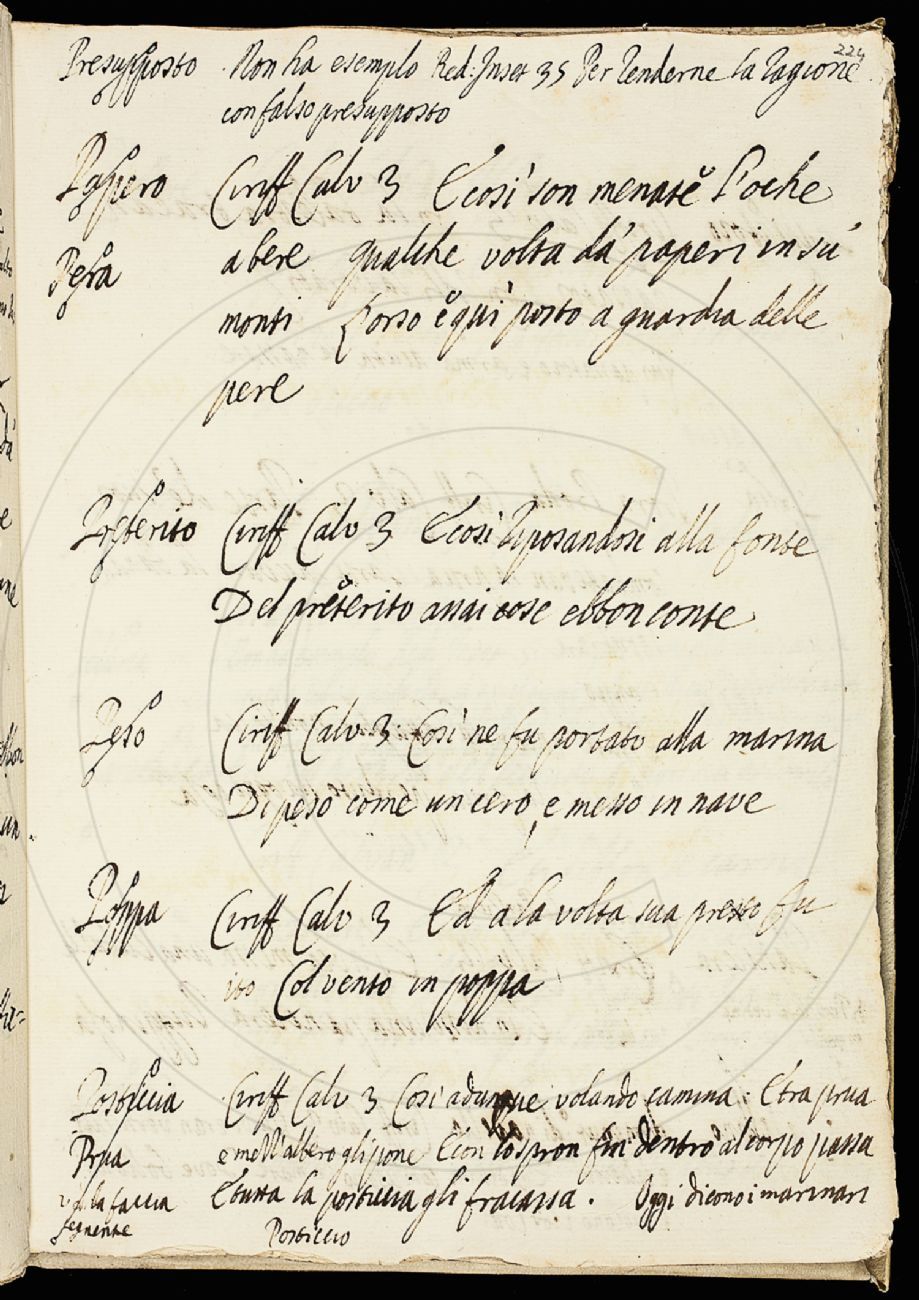 224
Presupposto Non ha esempio Red: Inset 35 Per renderne la ragione
con falso presupposto
Papero Ciriff Calv 3 E così son menate l'oche
Pera a bere qualche volta dà paperi in sù
monti L'orso è quì posto a guardia delle
pere
Preterito Ciriff Calv 3 E così riposandosi alla fonte
Del preterito assai cose ebbon conte
Peso Ciriff Calv 3 Così ne fu portato alla marina
Di peso come un cero, e messo in nave
Poppa Ciriff Calv 3 Ed a la volta sua presto fu
ito Col vento in poppa
Posticcia Ciriff Calv 3 Così adunque volando camina: E tra prua
Prua e mezz'albero gli pone E con lo spron fin dentro al corpo passa
la faccia E tutta la posticcia gli fracassa. Oggi dicono i marinari
seguente Posticcio